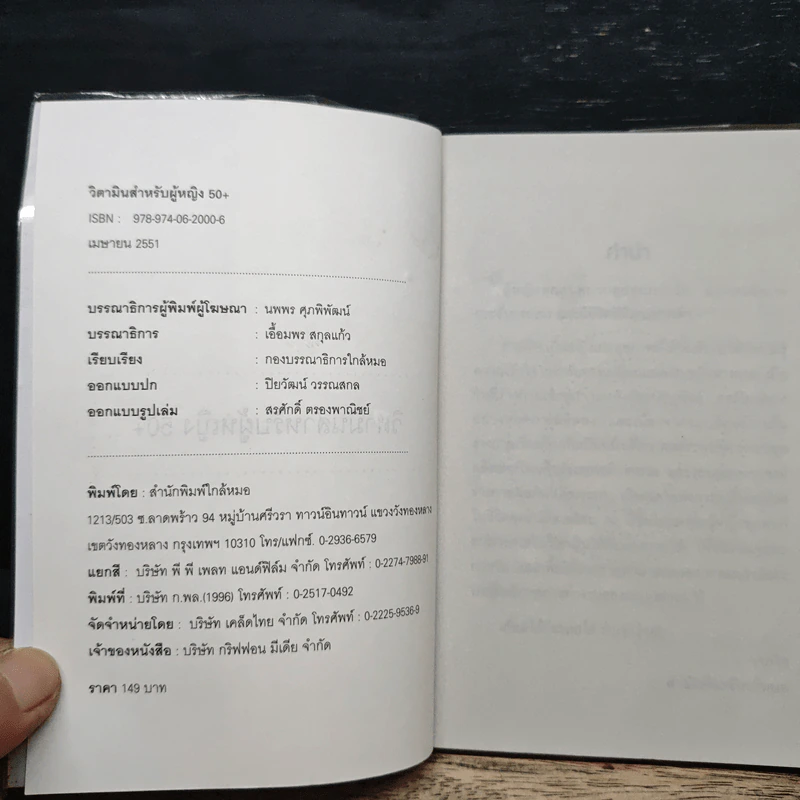 วิตามินสำหรับผู้หญิง 50+
ISBN : 978-974-06-2000-6
เมษายน 2551
บรรณาธิการผู้พิมพ์ผู้โฆษณา : นพพร ศุภพิพัฒน์
บรรณาธิการ : เอื้อมพร สกุลแก้ว
เรียบเรียง : กองบรรณาธิการใกล้หมอ
ออกแบบปก : ปิยวัฒน์ วรรณสกล
ออกแบบรูปเล่ม : สรศักดิ์ ตรองพาณิชย์
พิมพ์โดย : สำนักพิมพ์ใกล้หมอ
1213/503 ซ.ลาดพร้าว 94 หมู่บ้านศรีวรา ทาวน์อินทาวน์ แขวงวังทองหลาง
เขตวังทองหลาง กรุงเทพฯ 10310 โทร/แฟกซ์. 0-2936-6579
แยกสี : บริษัท พี พี เพลท แอนด์ฟิล์ม จำกัด โทรศัพท์ : 0-2274-7988-91
พิมพ์ที่ : บริษัท ก.พล.(1996) โทรศัพท์ : 0-2517-0492
จัดจำหน่ายโดย : บริษัท เคล็ดไทย จำกัด โทรศัพท์ : 0-2225-9536-9
เจ้าของหนังสือ : บริษัท กริฟฟอน มีเดีย จำกัด
ราคา 149 บาท